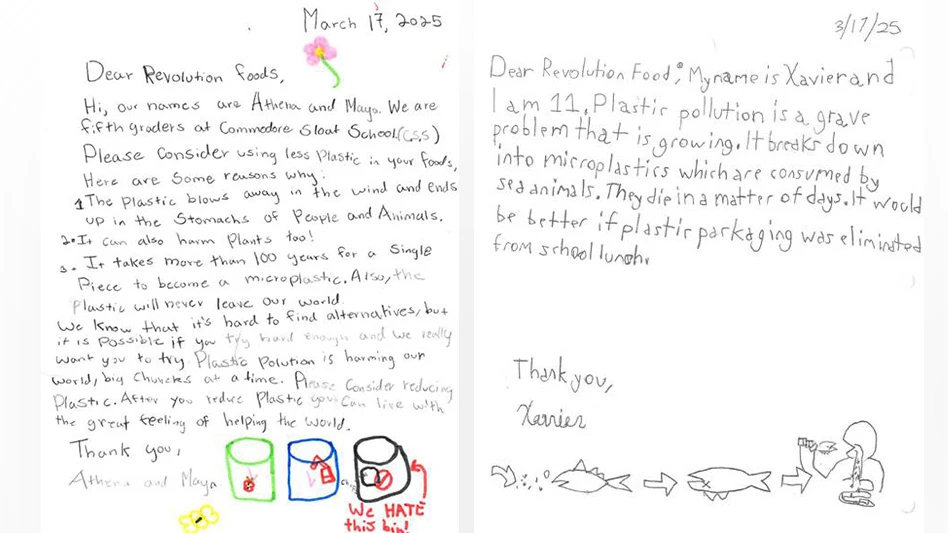 March 17, 2025
Dear Revolution Foods,
Hi, our names are Athena and Maya. We are
fifth graders at Commodore Sloat School. (CSS)
Please Consider using less Plastic in your foods,
Here are Some reasons why:
1 The Plastic blows away in the wind and ends
up in the Stomachs of People and Animals.
2. It can also harm Plants too!
3. It takes more than 100 years for a Single
Piece to become a microplastic. Also, the
Plastic will never leave our world.
We know that it's hard to find alternatives, but
it is Possible if you try hard enough and we really
want you to try Plastic Polution is harming our
world, big Chunckes at a time. Please Consider reducing
Plastic. After you reduce Plastic you Can live with
the great feeling of helping the world.
Thank you,
Athena and Maya
We HATE
this bin!
3/17/25
Dear Revolution Food, My name is Xavier and
I am 11. Plastic pollution is a grave
problem that is growing. It breaks down
into microplastics which are consumed by
sea animals. They die in a matter of days. It would
be better if plastic packaging was eliminated
from school lunch.
Thank you,
Xavier